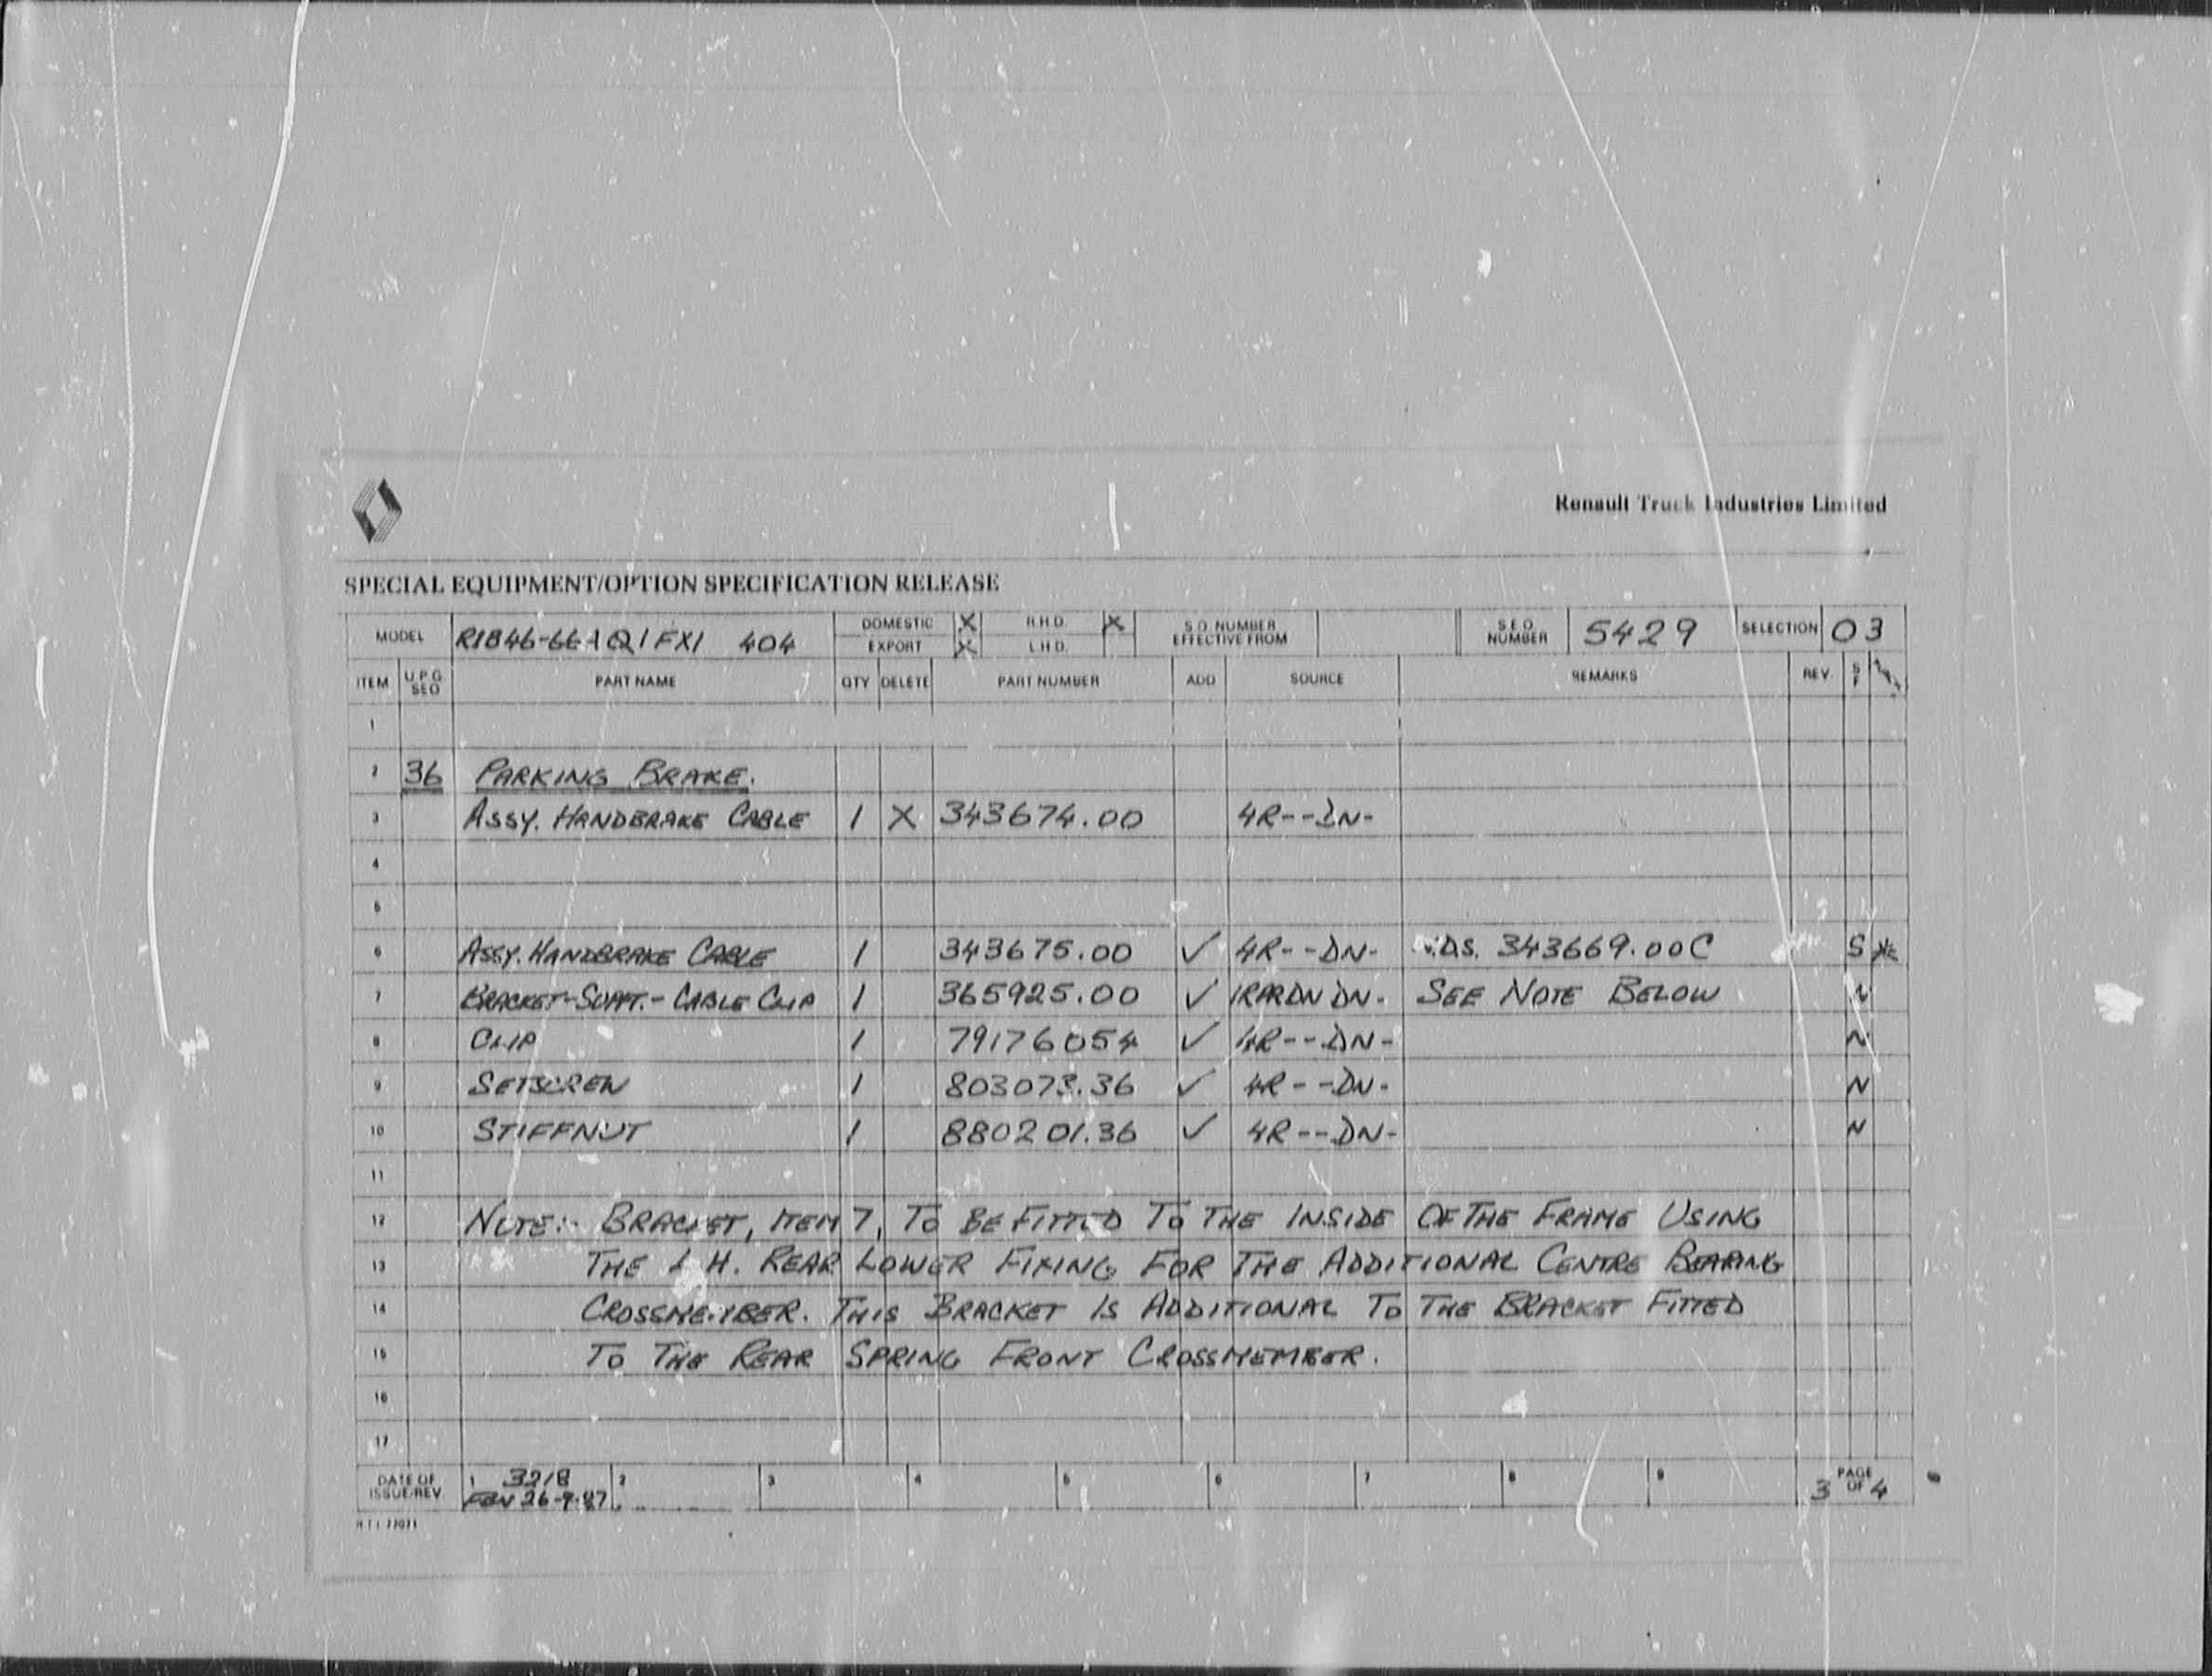 Renault Truck Industries Limited
SPECIAL EQUIPMENT/OPTION SPECIFICATION RELEASE
MODEL R1846-66A Q1FX1 404 DOMESTIC X R.H.D. X S.O. NUMBER EFFECTIVE FROM S.E.O. NUMBER 5429 SELECTION 03
EXPORT X L.H.D.
ITEM U.P.G. SEQ PART NAME QTY DELETE PART NUMBER ADD SOURCE REMARKS REV. S F
1
2 36 PARKING BRAKE.
3 ASSY. HANDBRAKE CABLE 1 X 343674.00 4R--DN-
4
5
6 ASSY. HANDBRAKE CABLE 1 343675.00 ✓ 4R--DN- 343669.00C S *
7 BRACKET-SUPPT.-CABLE CLIP 1 365925.00 ✓ DN- SEE NOTE BELOW N
8 CLIP 1 79176054 ✓ 4R--DN- N
9 SETSCREW 1 803073.36 ✓ 4R--DN- N
10 STIFFNUT 1 880201.36 ✓ 4R--DN- N
11
12 NOTE:- BRACKET, ITEM 7, TO BE FITTED TO THE INSIDE OF THE FRAME USING
13 THE L.H. REAR LOWER FIXING FOR THE ADDITIONAL CENTRE BEARING
14 CROSSMEMBER. THIS BRACKET IS ADDITIONAL TO THE BRACKET FITTED
15 TO THE REAR SPRING FRONT CROSSMEMBER.
16
17
DATE OF ISSUE/REV. 1 3218 2 3 4 5 6 7 8 9 PAGE 3 OF 4
26-9-87
R T I 77071